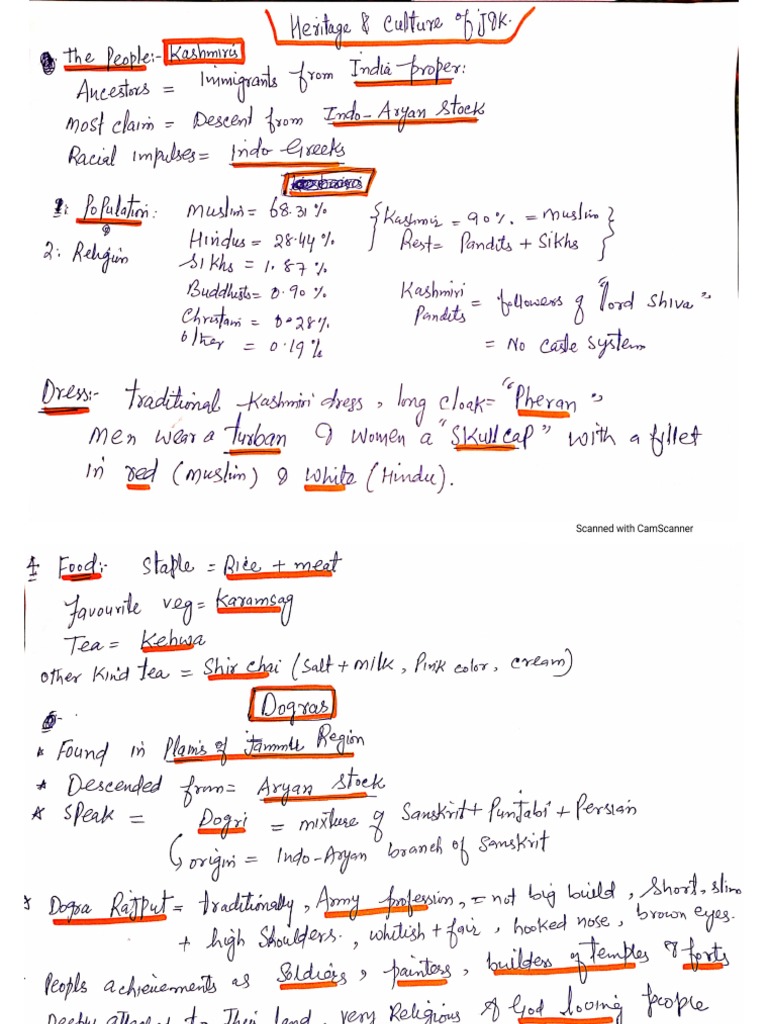 Heritage & Culture of J&K.
The People:- Kashmiris
Ancestors = Immigrants from India proper:
Most claim = Descent from Indo-Aryan Stock
Racial impulses = Indo Greeks
1: Population: Muslim = 68.31 % {Kashmir = 90% = muslim}
Hindus = 28.44 % {Rest = Pandits + Sikhs}
2: Religion
Sikhs = 1.87 %
Buddhists = 0.90 %
Kashmiri Pandits = followers of "lord Shiva"
Christian = 0.28%
= No caste system
Other = 0.19%
Dress:- Traditional Kashmiri dress, long cloak = "Pheran"
Men wear a Turban & women a "Skull cap" with a fillet
in red (Muslim) & White (Hindu).
Scanned with CamScanner
4 Food:- Staple = Rice + meat
Favourite veg = Karamsag
Tea = Kehwa
other kind tea = Shir chai (Salt + milk, Pink color, cream)
Dogras
* Found in Plains of Jammu Region
* Descended from = Aryan Stock
* Speak = Dogri = mixture of Sanskrit + Punjabi + Persian
origin = Indo-Aryan branch of Sanskrit
* Dogra Rajput = traditionally, Army profession, = not big build, Short, slim
+ high Shoulders, whitish + fair, hooked nose, brown eyes.
Peopls achievements as Soldiers, painters, builders of temples & forts
Deeply attached to Their land, very Religious & God loving people